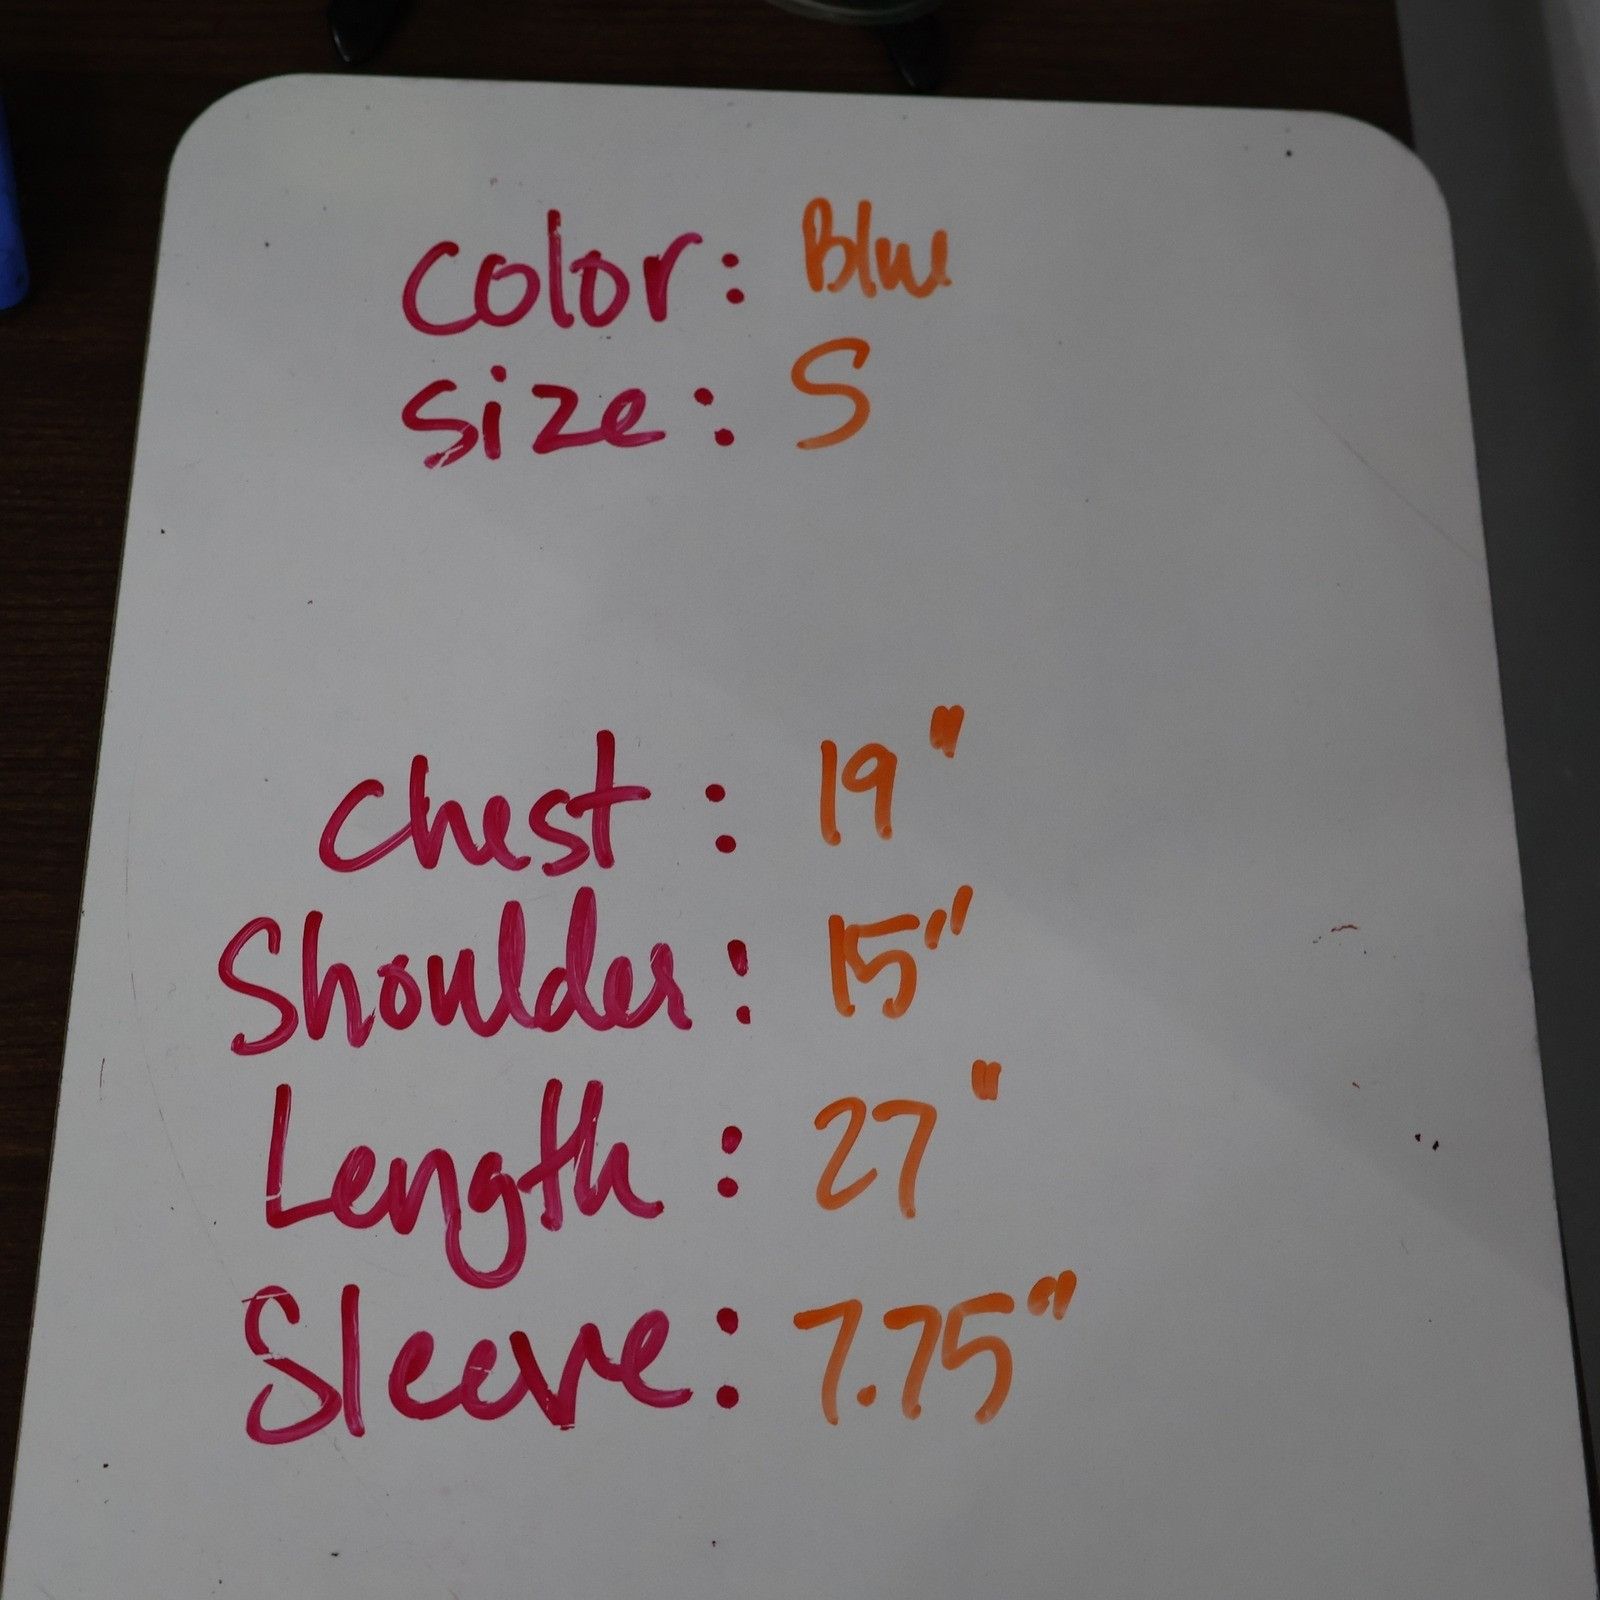 Color: Blue
Size: S
Chest: 19"
Shoulder: 15"
Length: 27"
Sleeve: 7.75"